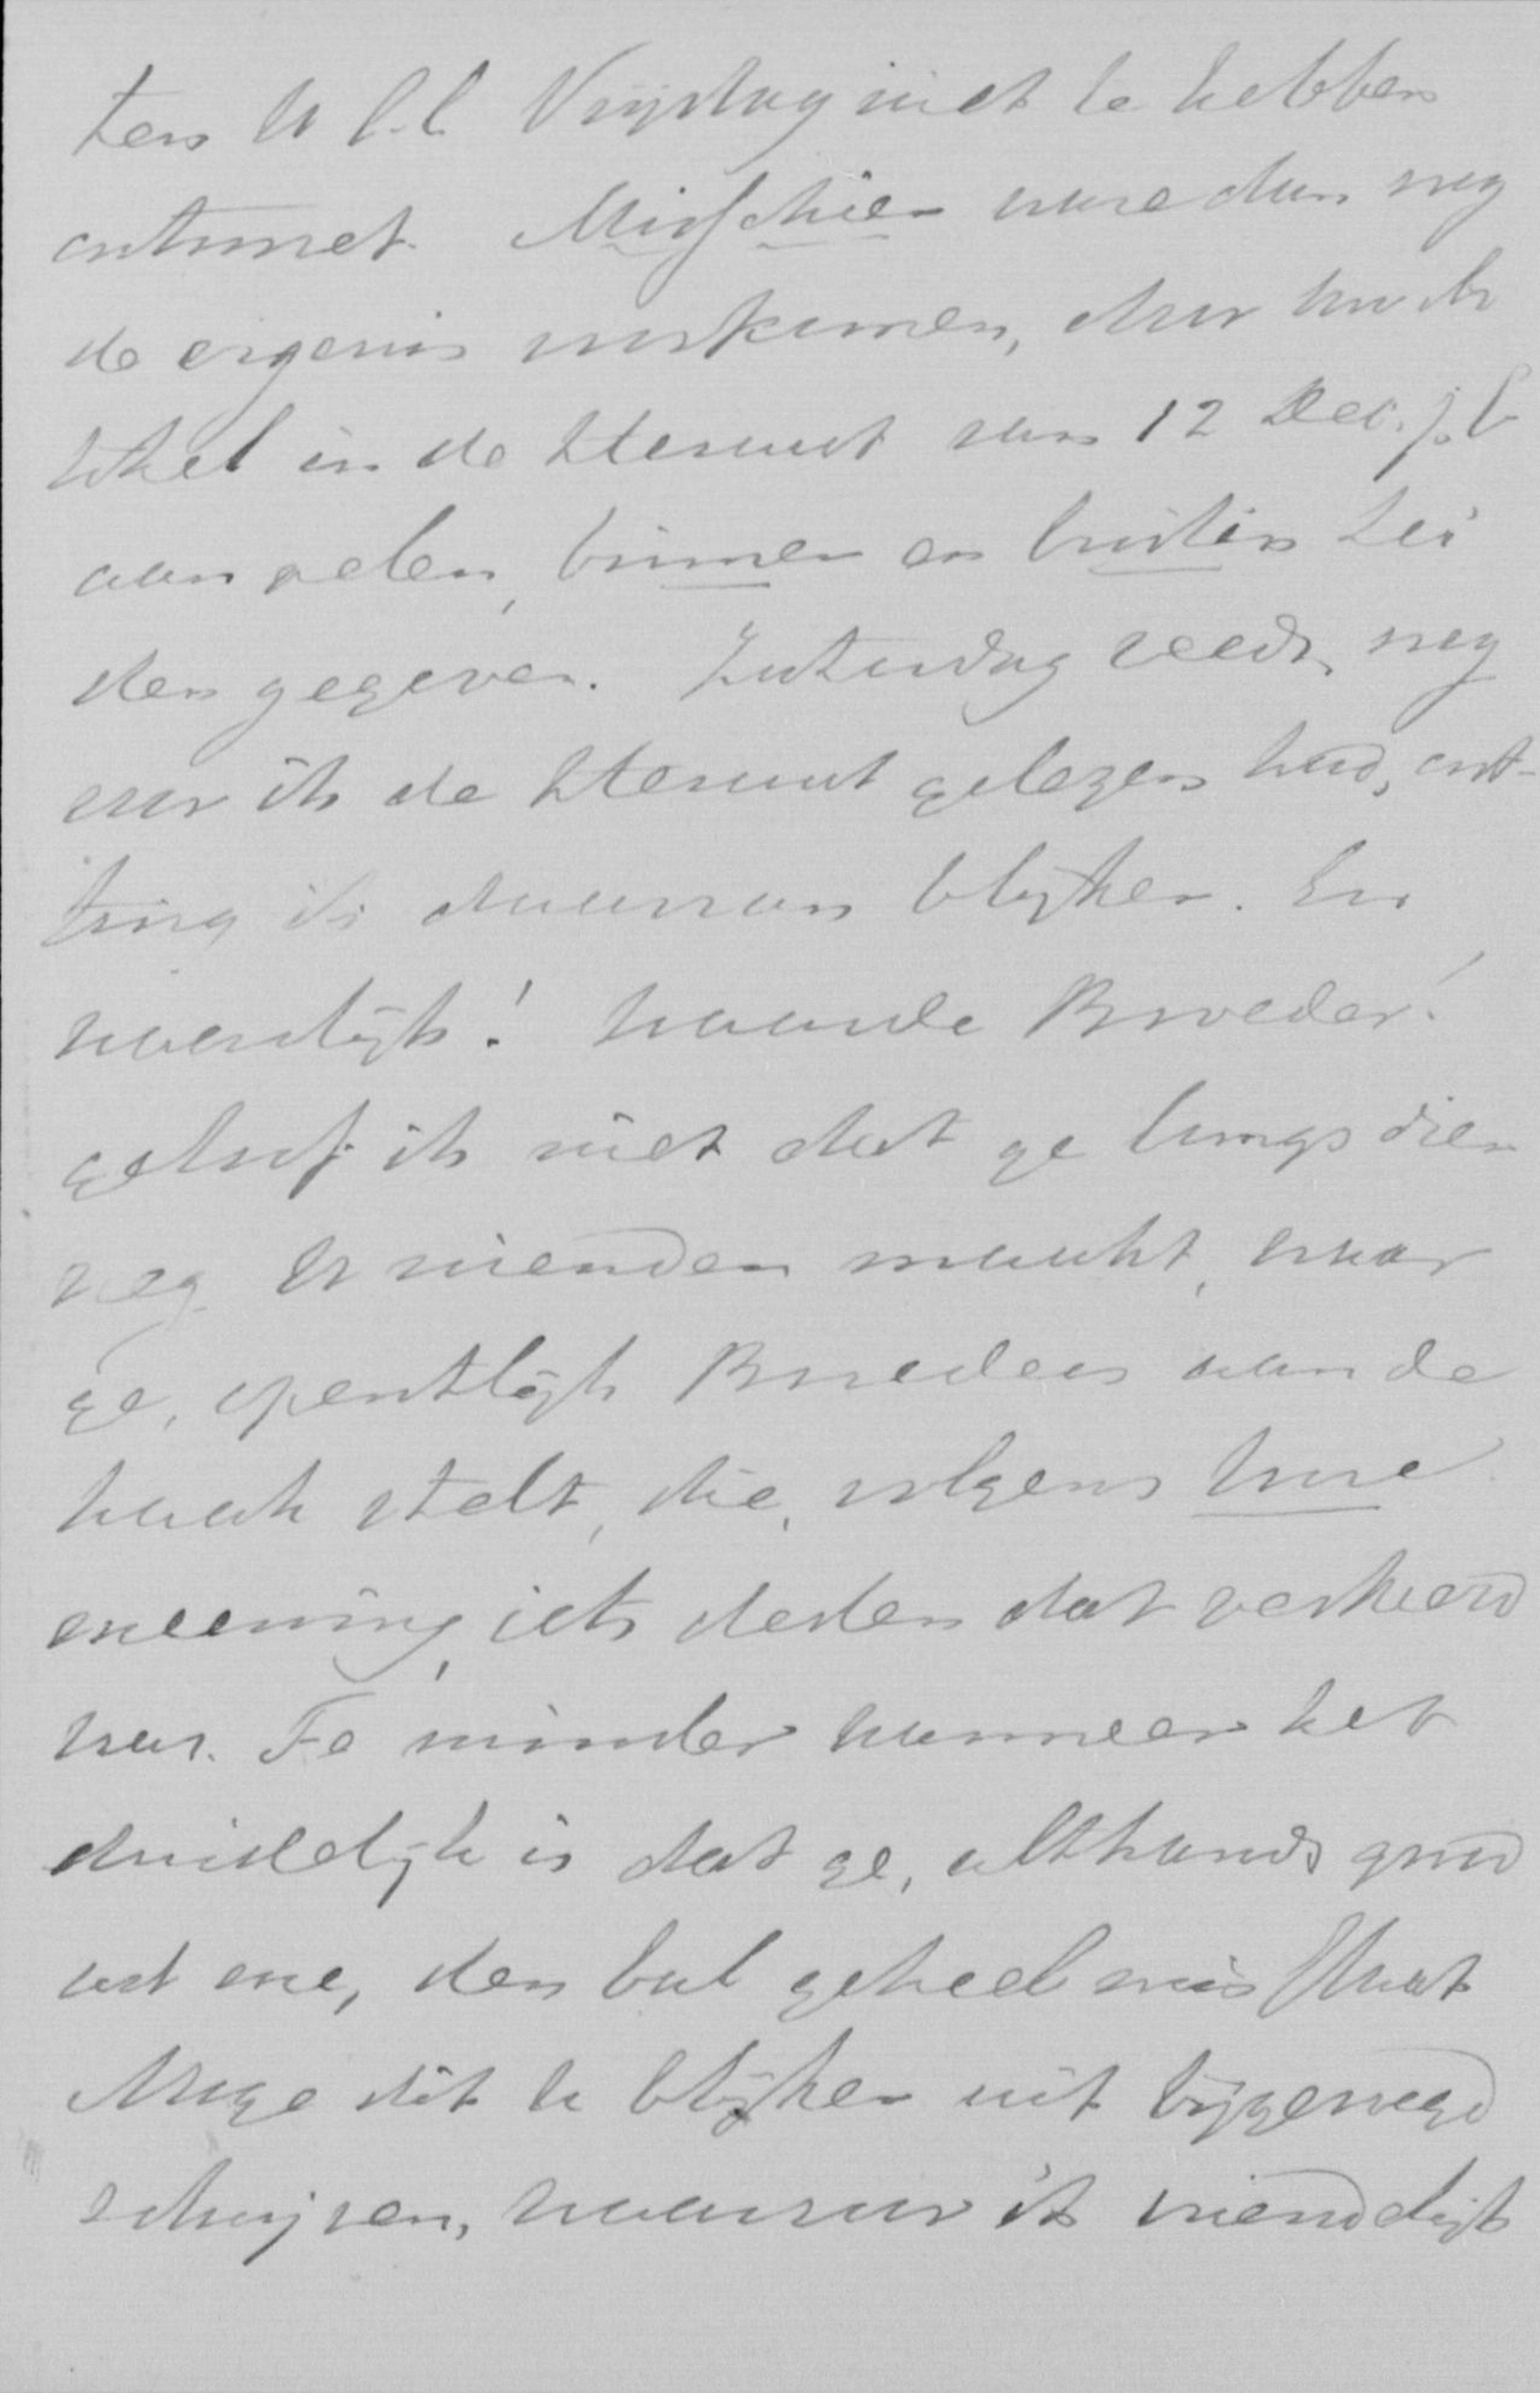 ten U l.l. Vrijdag niet te hebben
ontmoet. Misschien ware dan nog
de ergenis voorkomen, door Uw Ar
tikel in de Heraut van 12 Dec. j.l.
aan velen, binnen en buiten Lei
den gegeven. Zaturdag reeds, nog
voor ik de Heraut gelezen had, ont-
ving ik daarvan blijken. En
waarlijk! Waarde Broeder!
geloof ik niet dat ge langs dien
weg U vrienden maakt, waar
ge, openlijk Broeders aan de
kaak stelt, die, volgens Uwe
meening, iets deden dat verkeerd
was. Te minder wanneer het
duidelijk is dat ge, althands quod
ad me, den bal geheel mis slaat
Moge dit U blijken uit bijgevoegd
schrijven, waarvoor ik vriendelijk